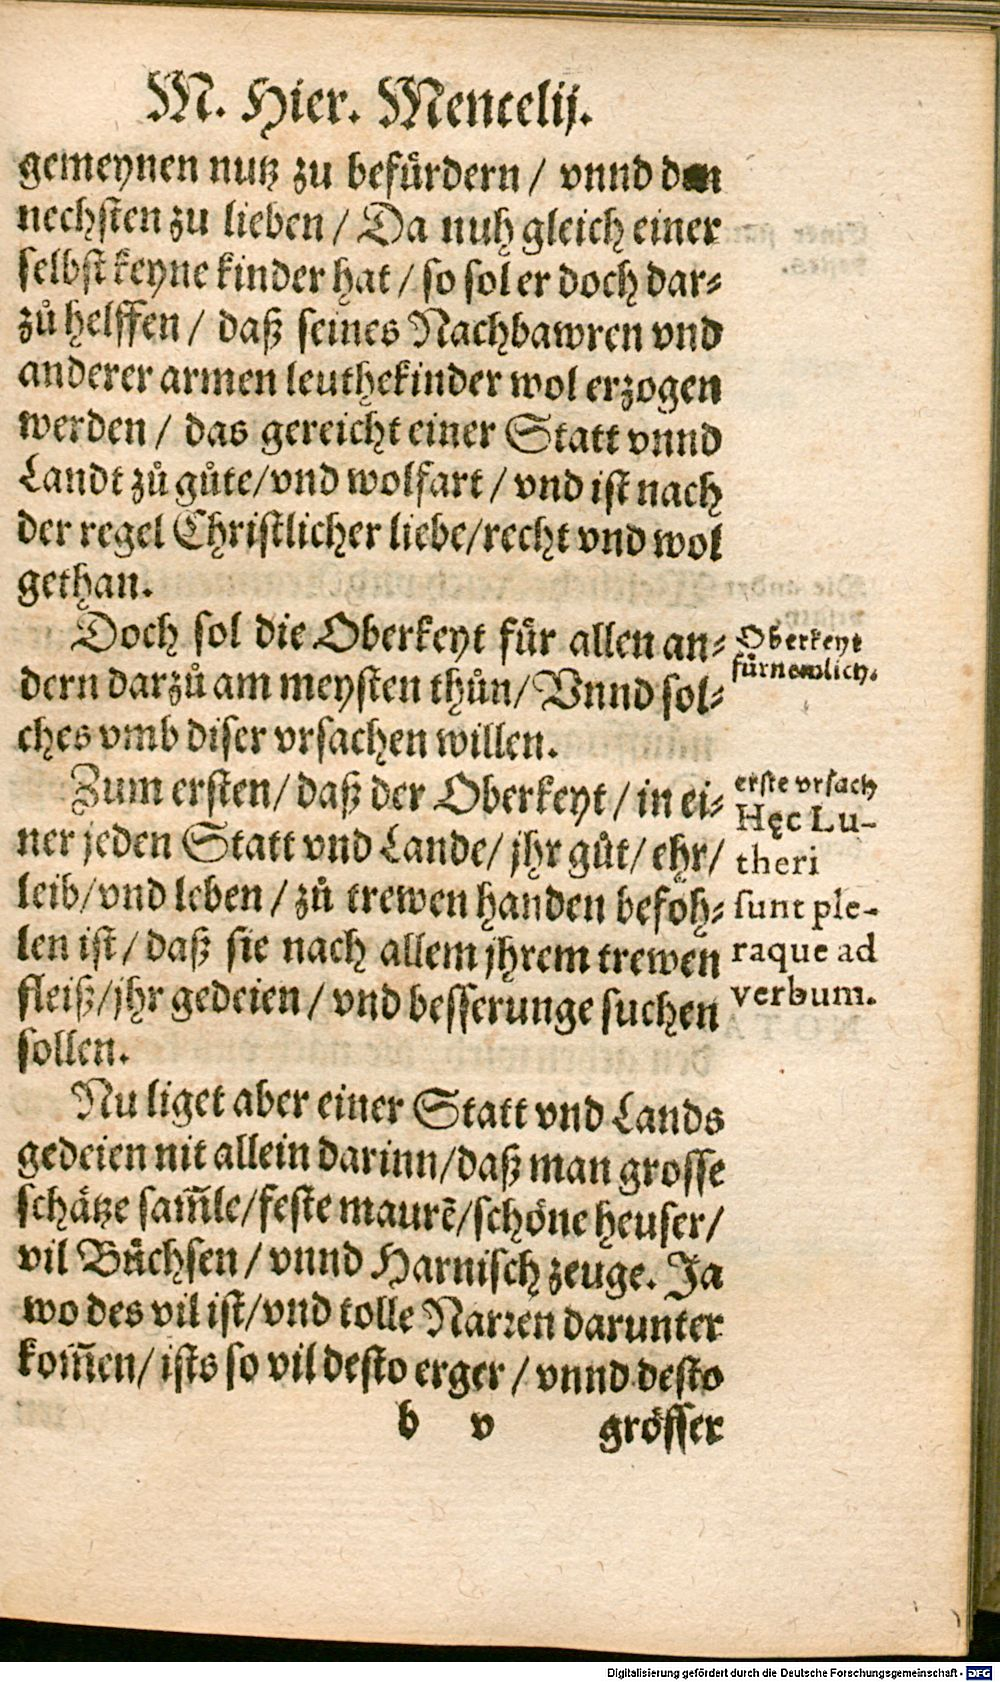 M. Hier. Mencelij.
gemeynen nutz zu befürdern / vnnd den
nechsten zu lieben / Da nuh gleich einer
selbst keyne kinder hat / so sol er doch dar⸗
zů helffen / daß seines Nachbawren vnd
anderer armen leuthe kinder wol erzogen
werden / das gereicht einer Statt vnnd
Landt zů gůte/vnd wolfart / vnd ist nach
der regel Christlicher liebe/recht vnd wol
gethan.
Doch sol die Oberkeyt für allen an⸗
dern darzů am meysten thůn/ Vnnd sol⸗
ches vmb diser vrsachen willen.
Oberkeyt
fürnemlich.
Zum ersten/ daß der Oberkeyt / in ei⸗
ner jeden Statt vnd Lande/ jhr gůt/ ehr/
leib/vnd leben / zů trewen handen befoh⸗
len ist/ daß sie nach allem jhrem trewen
fleiß/jhr gedeien / vnd besserunge suchen
sollen.
erste vrsach
Hęc Lu-
theri
sunt ple-
raque ad
verbum.
Nu liget aber einer Statt vnd Lands
gedeien nit allein darinn/daß man grosse
schätze sam̃le/feste maurẽ/schöne heuser/
vil Büchsen / vnnd Harnisch zeuge. Ja
wo des vil ist/vnd tolle Narꝛen darunter
kom̃en/ ists so vil desto erger / vnnd desto
b v grösser
Digitalisierung gefördert durch die Deutsche Forschungsgemeinschaft - DFG